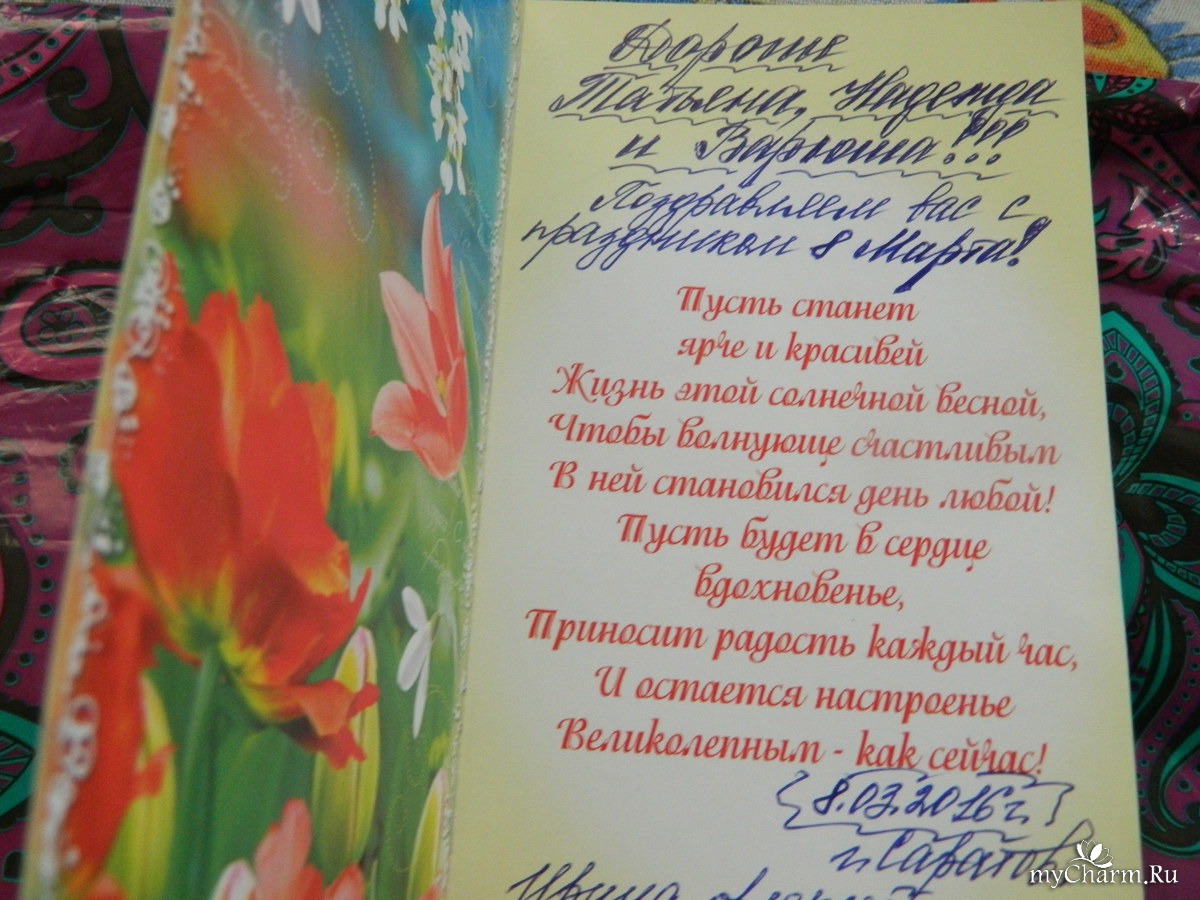 Дорогие
Татьяна, Надежда
и Варюша!!!
Поздравляем вас с
праздником 8 Марта!
Пусть станет
ярче и красивей
Жизнь этой солнечной весной,
Чтобы волнующе счастливым
В ней становился день любой!
Пусть будет в сердце
вдохновенье,
Приносит радость каждый час,
И остается настроенье
Великолепным - как сейчас!
8.03.2016 г.
г. Саратов
Ирина
myCharm.Ru